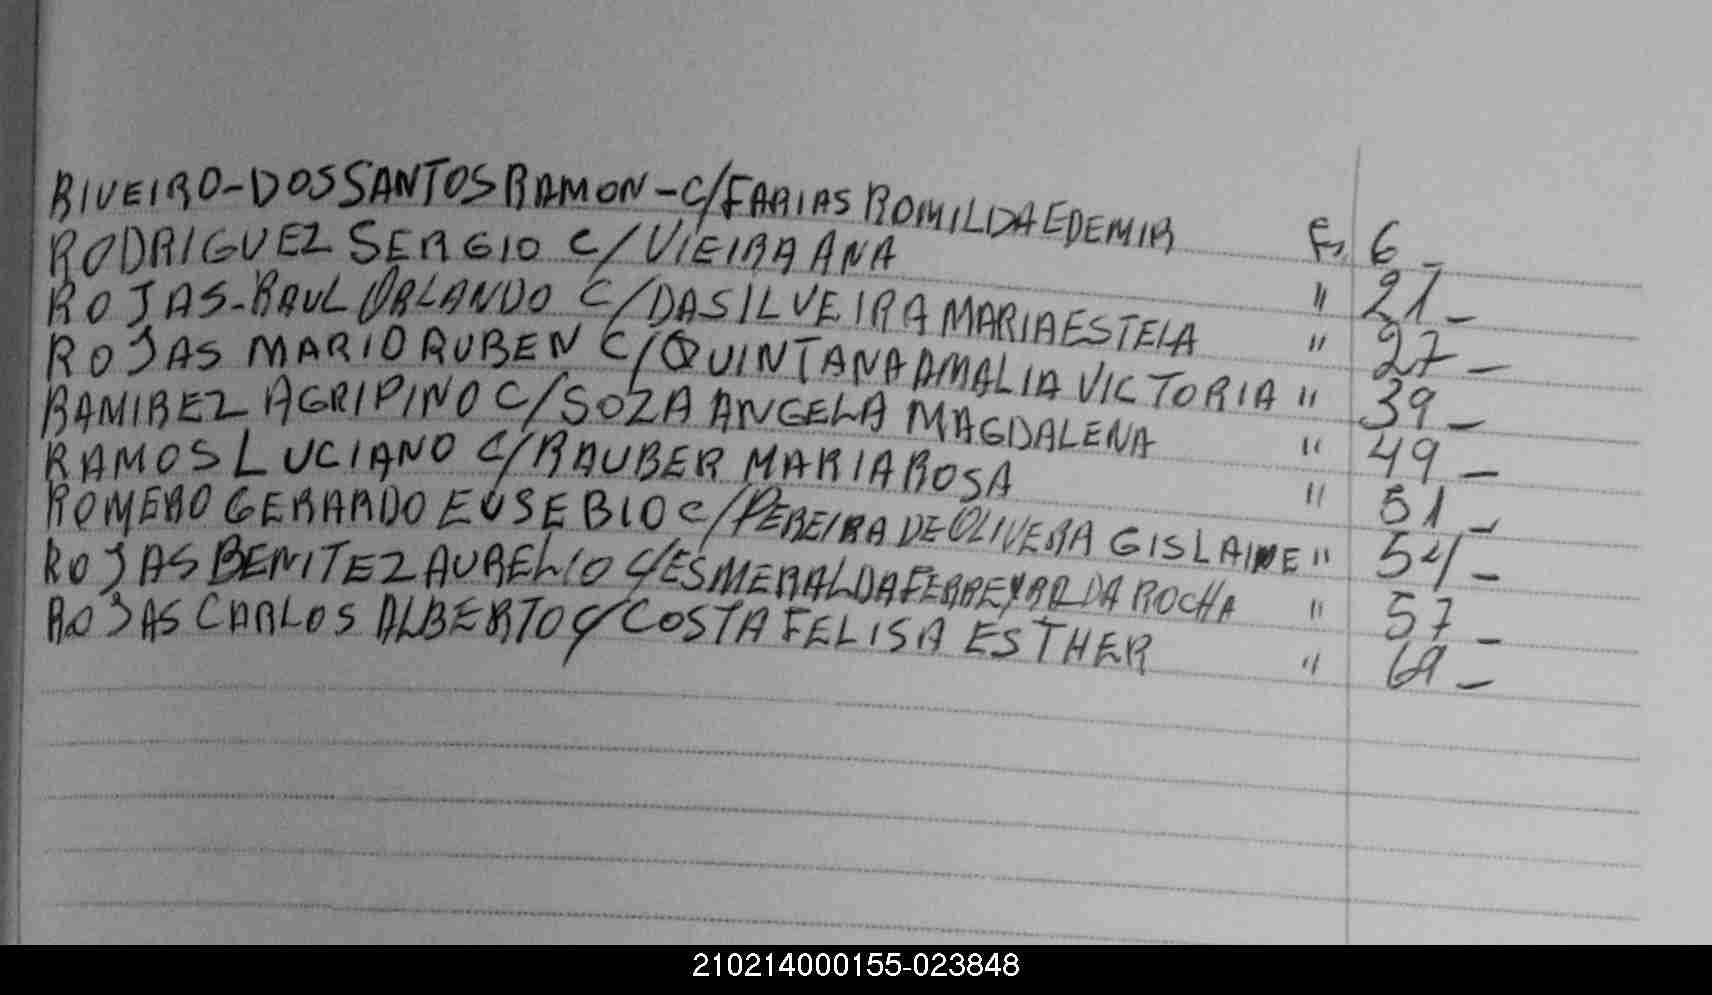 RIVEIRO-DOS SANTOS RAMON-C/FARIAS ROMILDA EDEMIR Fs 6_
RODRIGUEZ SERGIO C/VIEIRA ANA " 21_
ROJAS-RAUL ORLANDO C/DA SILVEIRA MARIA ESTELA " 27_
ROJAS MARIO RUBEN C/QUINTANA AMALIA VICTORIA " 39_
RAMIREZ AGRIPINO C/SOZA ANGELA MAGDALENA " 49_
RAMOS LUCIANO C/RAUBER MARIA ROSA " 51_
ROMERO GERARDO EUSEBIO C/PEREIRA DE OLIVERA GISLAINE " 54_
ROJAS BENITEZ AURELIO C/ESMERALDA FERREYRA DA ROCHA " 57_
ROJAS CARLOS ALBERTO C/COSTA FELISA ESTHER "
210214000155-023848